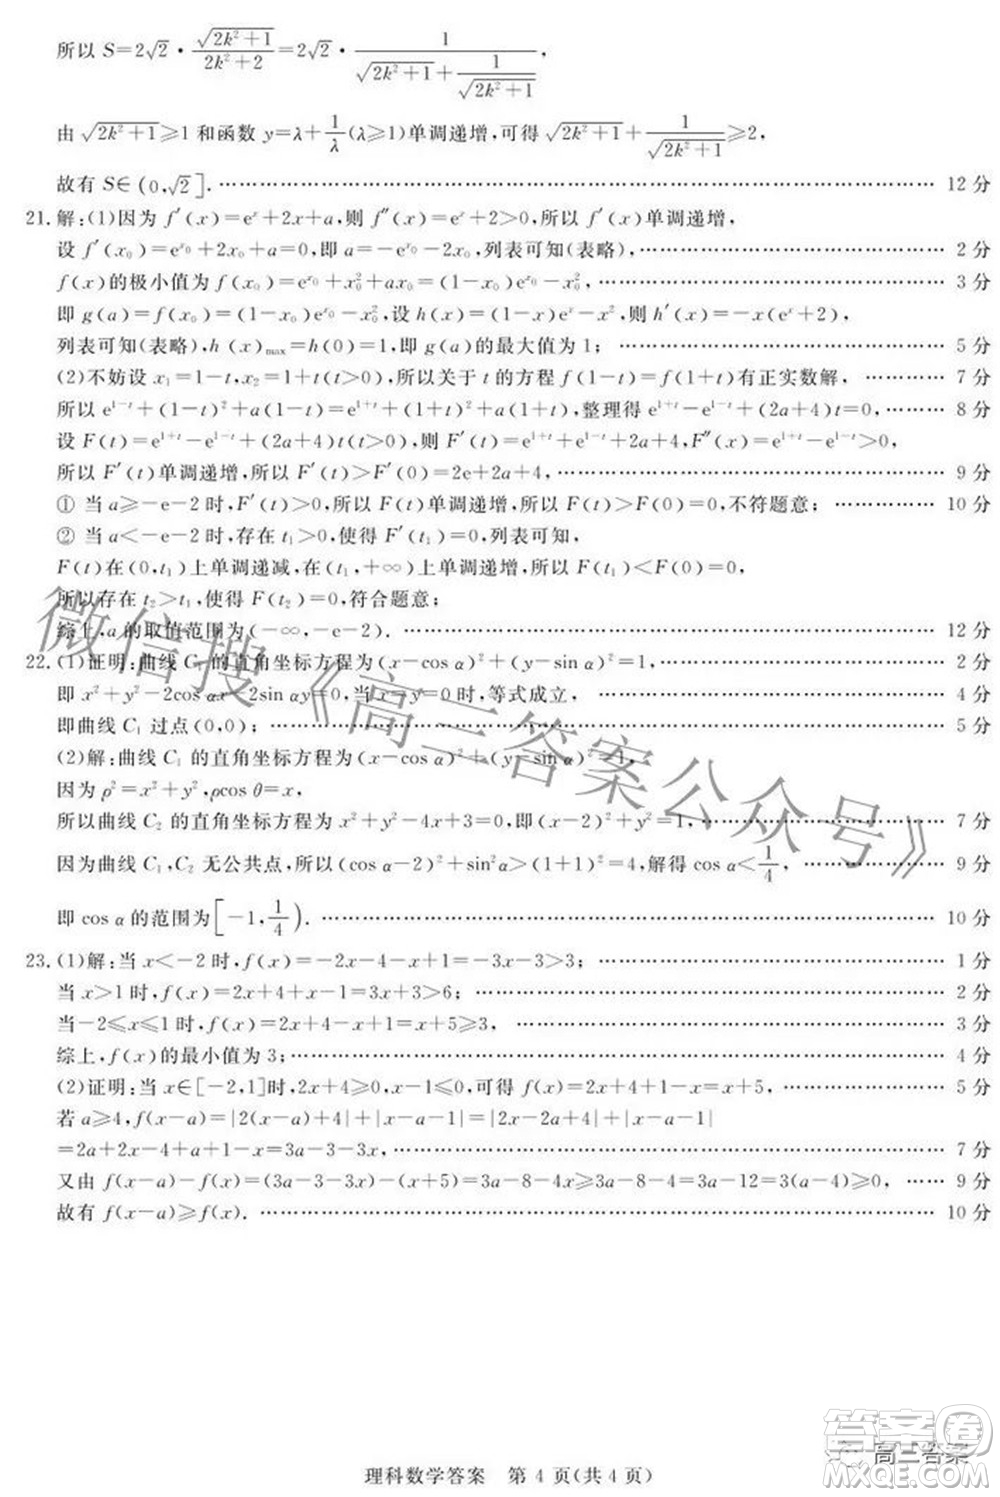 所以 S=2√2·√(2k²+1)/(2k²+2)=2√2·1/(√(2k²+1)+1/√(2k²+1)),
由 √(2k²+1)≥1 和函数 y=λ+1/λ(λ≥1)单调递增,可得 √(2k²+1)+1/√(2k²+1)≥2,
故有 S∈(0,√2]. …… 12 分
21.解:(1)因为 f′(x)=eˣ+2x+a,则 f″(x)=eˣ+2>0,所以 f′(x)单调递增,
设 f′(x₀)=e^{x₀}+2x₀+a=0,即 a=-e^{x₀}-2x₀,列表可知(表略), …… 2 分
f(x)的极小值为 f(x₀)=e^{x₀}+x₀²+ax₀=(1-x₀)e^{x₀}-x₀², …… 3 分
即 g(a)=f(x₀)=(1-x₀)e^{x₀}-x₀²,设 h(x)=(1-x)eˣ-x²,则 h′(x)=-x(eˣ+2),
列表可知(表略),h(x)max=h(0)=1,即 g(a)的最大值为 1; …… 5 分
(2)不妨设 x₁=1-t,x₂=1+t(t>0),所以关于 t 的方程 f(1-t)=f(1+t)有正实数解, …… 7 分
所以 e^{1-t}+(1-t)²+a(1-t)=e^{1+t}+(1+t)²+a(1+t),整理得 e^{1+t}-e^{1-t}+(2a+4)t=0, …… 8 分
设 F(t)=e^{1+t}-e^{1-t}+(2a+4)t(t>0),则 F′(t)=e^{1+t}+e^{1-t}+2a+4,F″(x)=e^{1+t}-e^{1-t}>0,
所以 F′(t)单调递增,所以 F′(t)>F′(0)=2e+2a+4, …… 9 分
① 当 a≥-e-2 时,F′(t)>0,所以 F(t)单调递增,所以 F(t)>F(0)=0,不符题意; …… 10 分
② 当 a<-e-2 时,存在 t₁>0,使得 F′(t₁)=0,列表可知,
F(t)在(0,t₁)上单调递减,在(t₁,+∞)上单调递增,所以 F(t₁)<F(0)=0,
所以存在 t₂>t₁,使得 F(t₂)=0,符合题意;
综上,a 的取值范围为(-∞,-e-2). …… 12 分
22.(1)证明:曲线 C₁ 的直角坐标方程为(x-cos α)²+(y-sin α)²=1, …… 2 分
即 x²+y²-2cos αx-2sin αy=0,当 x=y=0 时,等式成立, …… 4 分
即曲线 C₁ 过点(0,0); …… 5 分
(2)解:曲线 C₁ 的直角坐标方程为(x-cos α)²+(y-sin α)²=1,
因为 ρ²=x²+y²,ρcos θ=x,
所以曲线 C₂ 的直角坐标方程为 x²+y²-4x+3=0,即(x-2)²+y²=1, …… 7 分
因为曲线 C₁,C₂ 无公共点,所以(cos α-2)²+sin²α>(1+1)²=4,解得 cos α<1/4, …… 9 分
即 cos α 的范围为[-1,1/4). …… 10 分
23.(1)解:当 x<-2 时,f(x)=-2x-4-x+1=-3x-3>3; …… 1 分
当 x>1 时,f(x)=2x+4+x-1=3x+3>6; …… 2 分
当-2≤x≤1 时,f(x)=2x+4-x+1=x+5≥3, …… 3 分
综上,f(x)的最小值为 3; …… 4 分
(2)证明:当 x∈[-2,1]时,2x+4≥0,x-1≤0,可得 f(x)=2x+4+1-x=x+5, …… 5 分
若 a≥4,f(x-a)=|2(x-a)+4|+|x-a-1|=|2x-2a+4|+|x-a-1|
=2a+2x-4+a+1-x=3a-3-3x, …… 7 分
又由 f(x-a)-f(x)=(3a-3-3x)-(x+5)=3a-8-4x≥3a-8-4=3a-12=3(a-4)≥0, …… 9 分
故有 f(x-a)≥f(x). …… 10 分
微信搜《高三答案公众号》
理科数学答案 第 4 页(共 4 页)
答案卷
高三答案
MXQE.COM